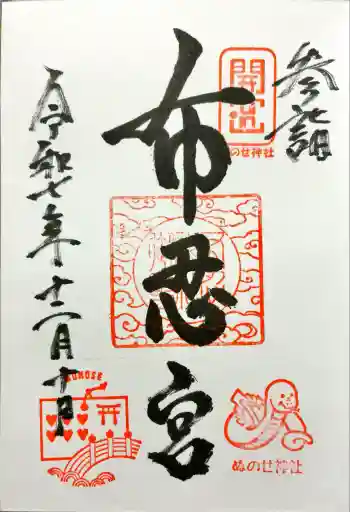 参詣
開運
ぬのせ神社
布忍宮
令和七年十二月十日
NUNOSE
ぬのせ神社